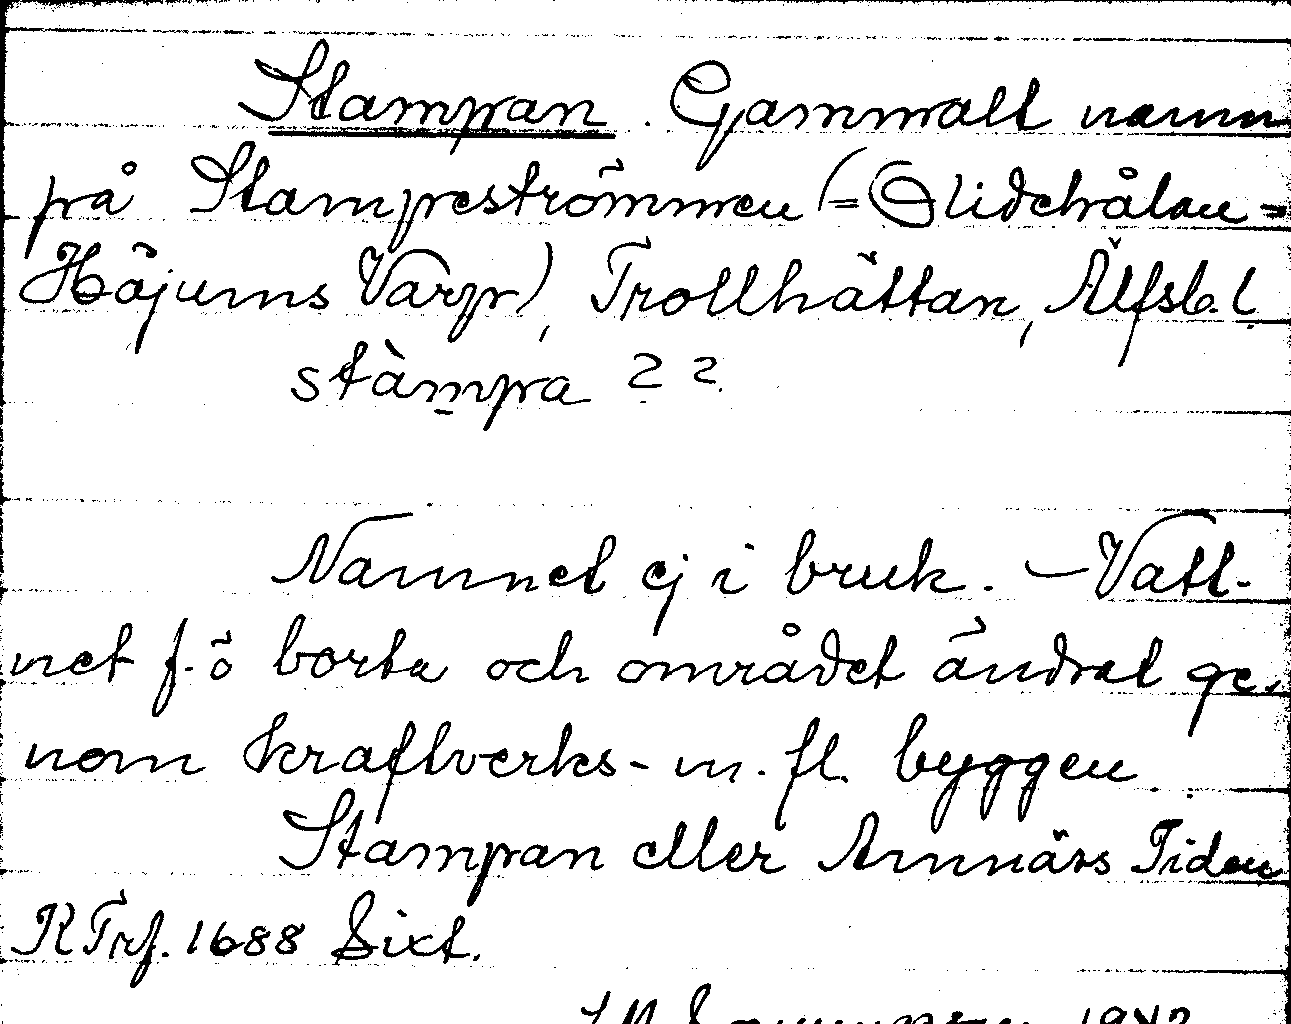 Stampan. Gammalt namn
på Stampeströmmen (= Olidehålan =
Höjums Varp), Trollhättan, Älfsb. l.
stàmpa 2 2.
Namnet ej i bruk. – Vatt-
net f. ö borta och området ändrat ge-
nom kraftverks- m. fl. byggen
Stampan eller Arnnärs Tiden
R Trf. 1688 Sixt.
1942